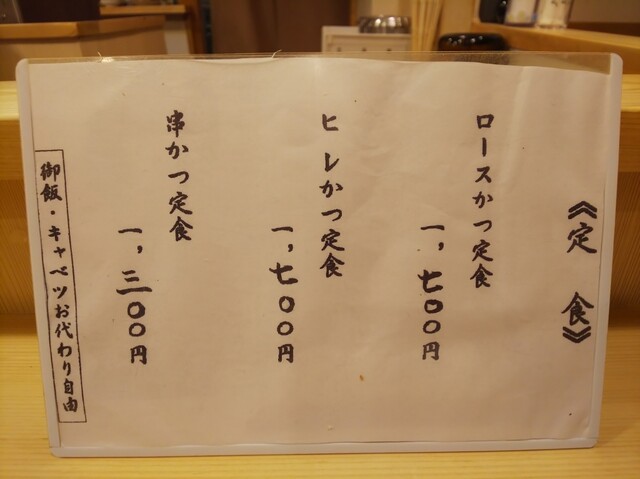 《定食》
ロースかつ定食
一,七〇〇円
ヒレかつ定食
一,七〇〇円
串かつ定食
一,三〇〇円
御飯・キャベツお代わり自由